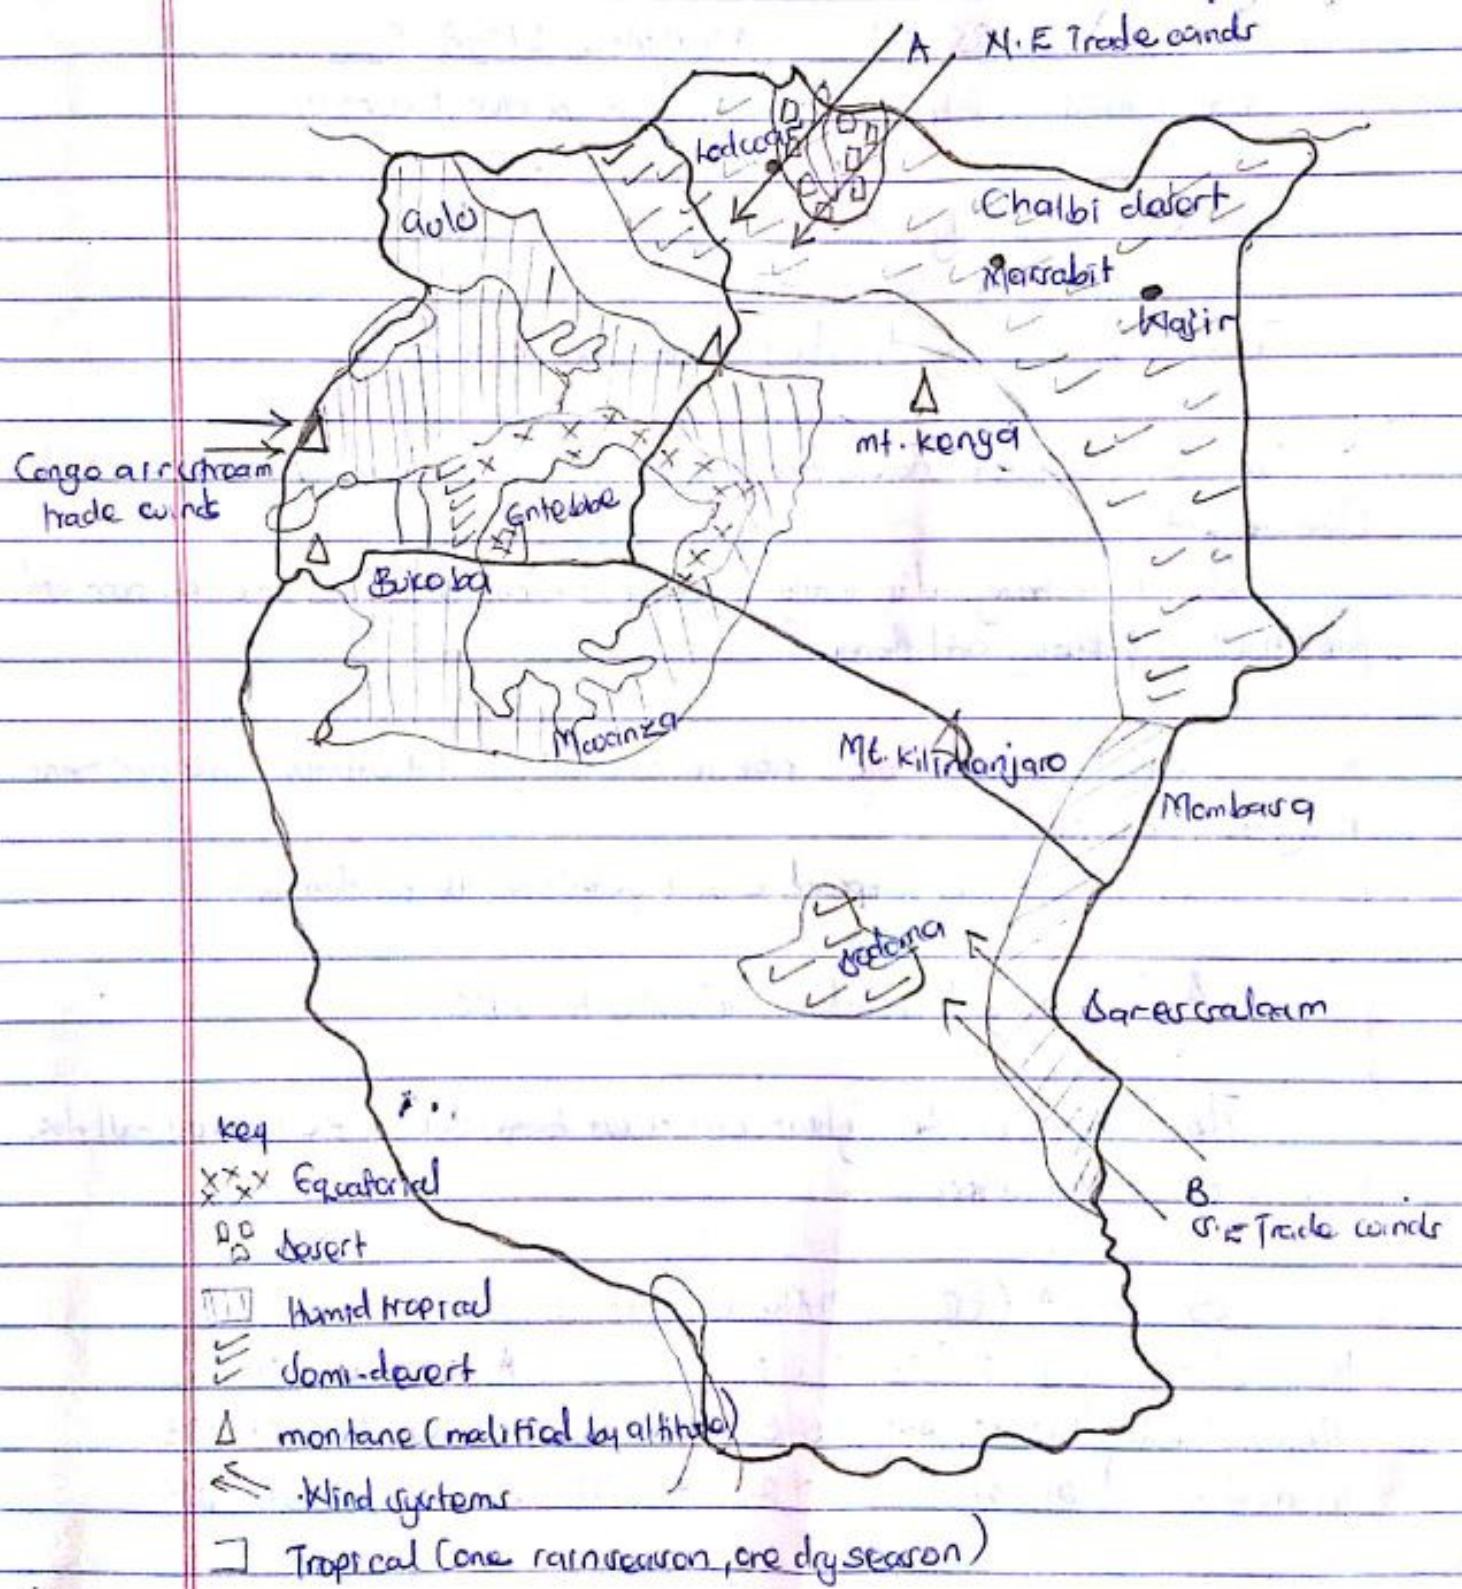 A N.E Trade winds
Lodwar
Gulu
Chalbi desert
Marsabit
Wajir
mt. kenya
Congo airstream
trade winds
Entebbe
Bukoba
Mwanza
Mt. Kilimanjaro
Mombasa
Dodoma
Daressalaam
B
S.E Trade winds
key
Equatorial
Desert
Humid tropical
Semi-desert
montane (modified by altitude)
Wind systems
Tropical (one rainseason, one dry season)